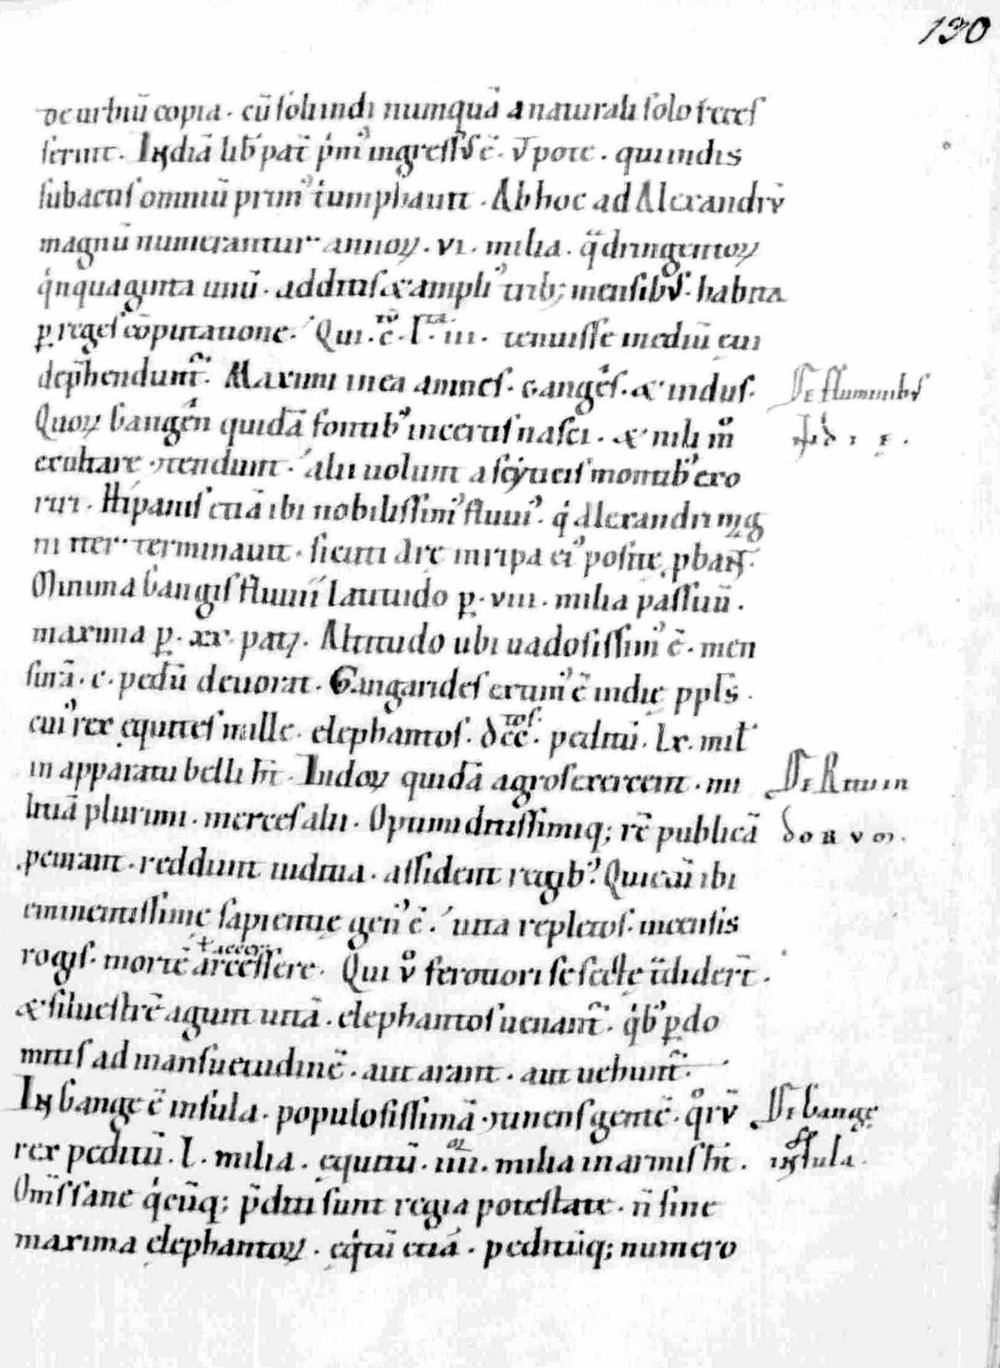 130
de urbiũ copia · cũ soli indi numquã a naturali solo recęs
serint · Indiã lib̃ pat̃ p̃m᾿ ingressus ẽ · vpote · qui indis
subactis omniũ prim᾿ t̾umphauit · Ab hoc ad Alexandrũ
magnũ numerantur annoꝝ · vi · milia · q̃dringentoꝝ
q̾nquaginta unũ · additis & ampli᾿ trib; mensibus · habita
ꝑ reges cõputatione · Qui · c̃ · l · iii · tenuisse mediũ eui
dep̃hendunt̃ · Maximi in ea amnes · ganges · & indus ·
De fluminibus
Quoꝝ Gangen quidã fontib᾿ incertis nasci · & nili m̊
exultare ɔtendunt · alii uolunt a scyticis montib᾿ exo
riri · Hipanis etiã ibi nobilissim᾿ fluui᾿ · q̾ Alexandri mag
ni iter terminauit · sicuti arę in ripa ei᾿ positę ꝓbant̃ ·
Minima Gangis fluuii latitudo ꝑ · viii · milia passuũ ·
maxima ꝑ · xx · pat; · Altitudo ubi uadosissim᾿ ẽ · men
surã · c · pedũ deuorat · Gangarides extim᾿ ẽ indię ppl̃s ·
cui᾿ rex equites mille · elephantos · dcc̃ · peditũ · lx · mil̃
in apparatu belli h̃t · Indoꝝ quidã agros exercent · mi
De Ritu in
litiã plurimi · merces alii · Optimi ditissimiq; rẽ publicã
doRvm ·
petrant · reddunt iuditia · assident regib᾿ · Quietũ ibi
eminentissimę sapientię gen᾿ ẽ · uita repletos · incensis
rogis · mortẽ arcessere · Qui v̊ ferotiori se sectę t̃didert̃ ·
& siluestrẽ agunt uitã · elephantos uenant̃ · q̾b᾿ ꝑdo
mitis ad mansuetudinẽ · aut arant · aut uehunt̃ ·
In Gange ẽ insula · populosissimã ɔtinens gentẽ · q̊rũ
De Gange
rex peditũ · l · milia · equitũ · iiii · milia in armis h̃t ·
insula ·
Om̃s sane q̾cũq; p̃diti sunt regia potestate · ñ sine
maxima elephantoꝝ · eq̾tũ etiã · peditũq; numero